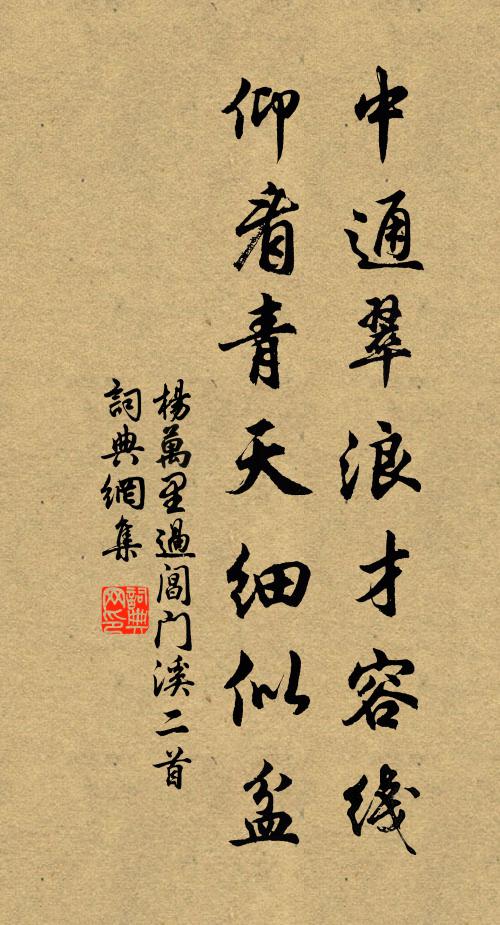 中通翠浪才容线
仰看青天细似盆
楊萬里過閶门溪二首
詞典網集
詞典网印